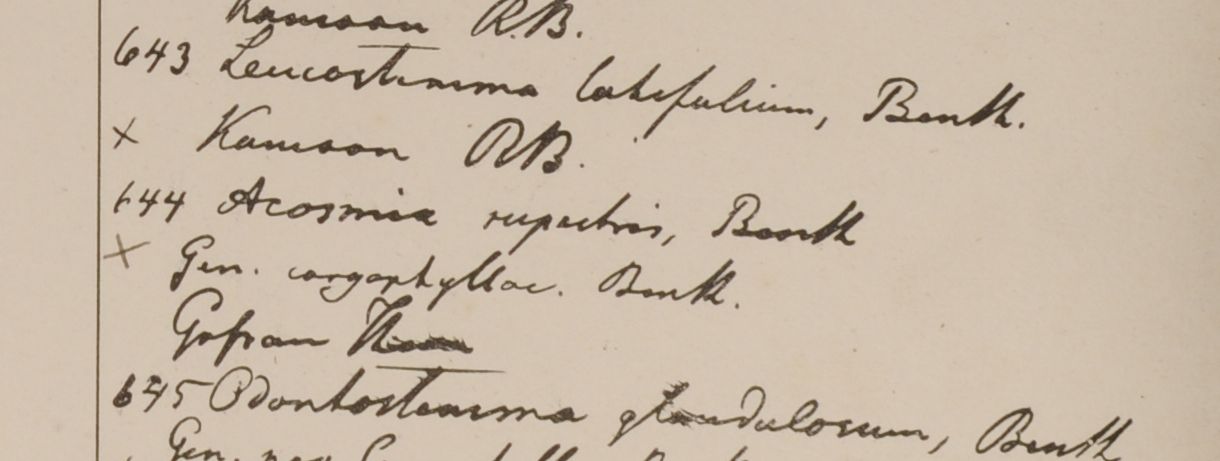 Kamaon R.B.
643 Leucostemma latifolium, Benth.
x Kamaon RB.
644 Acosmia rupestris, Benth
x Gen. caryophyllac. Benth.
Gossan
645 Odontostemma glandulosum, Benth
Gen. nov.